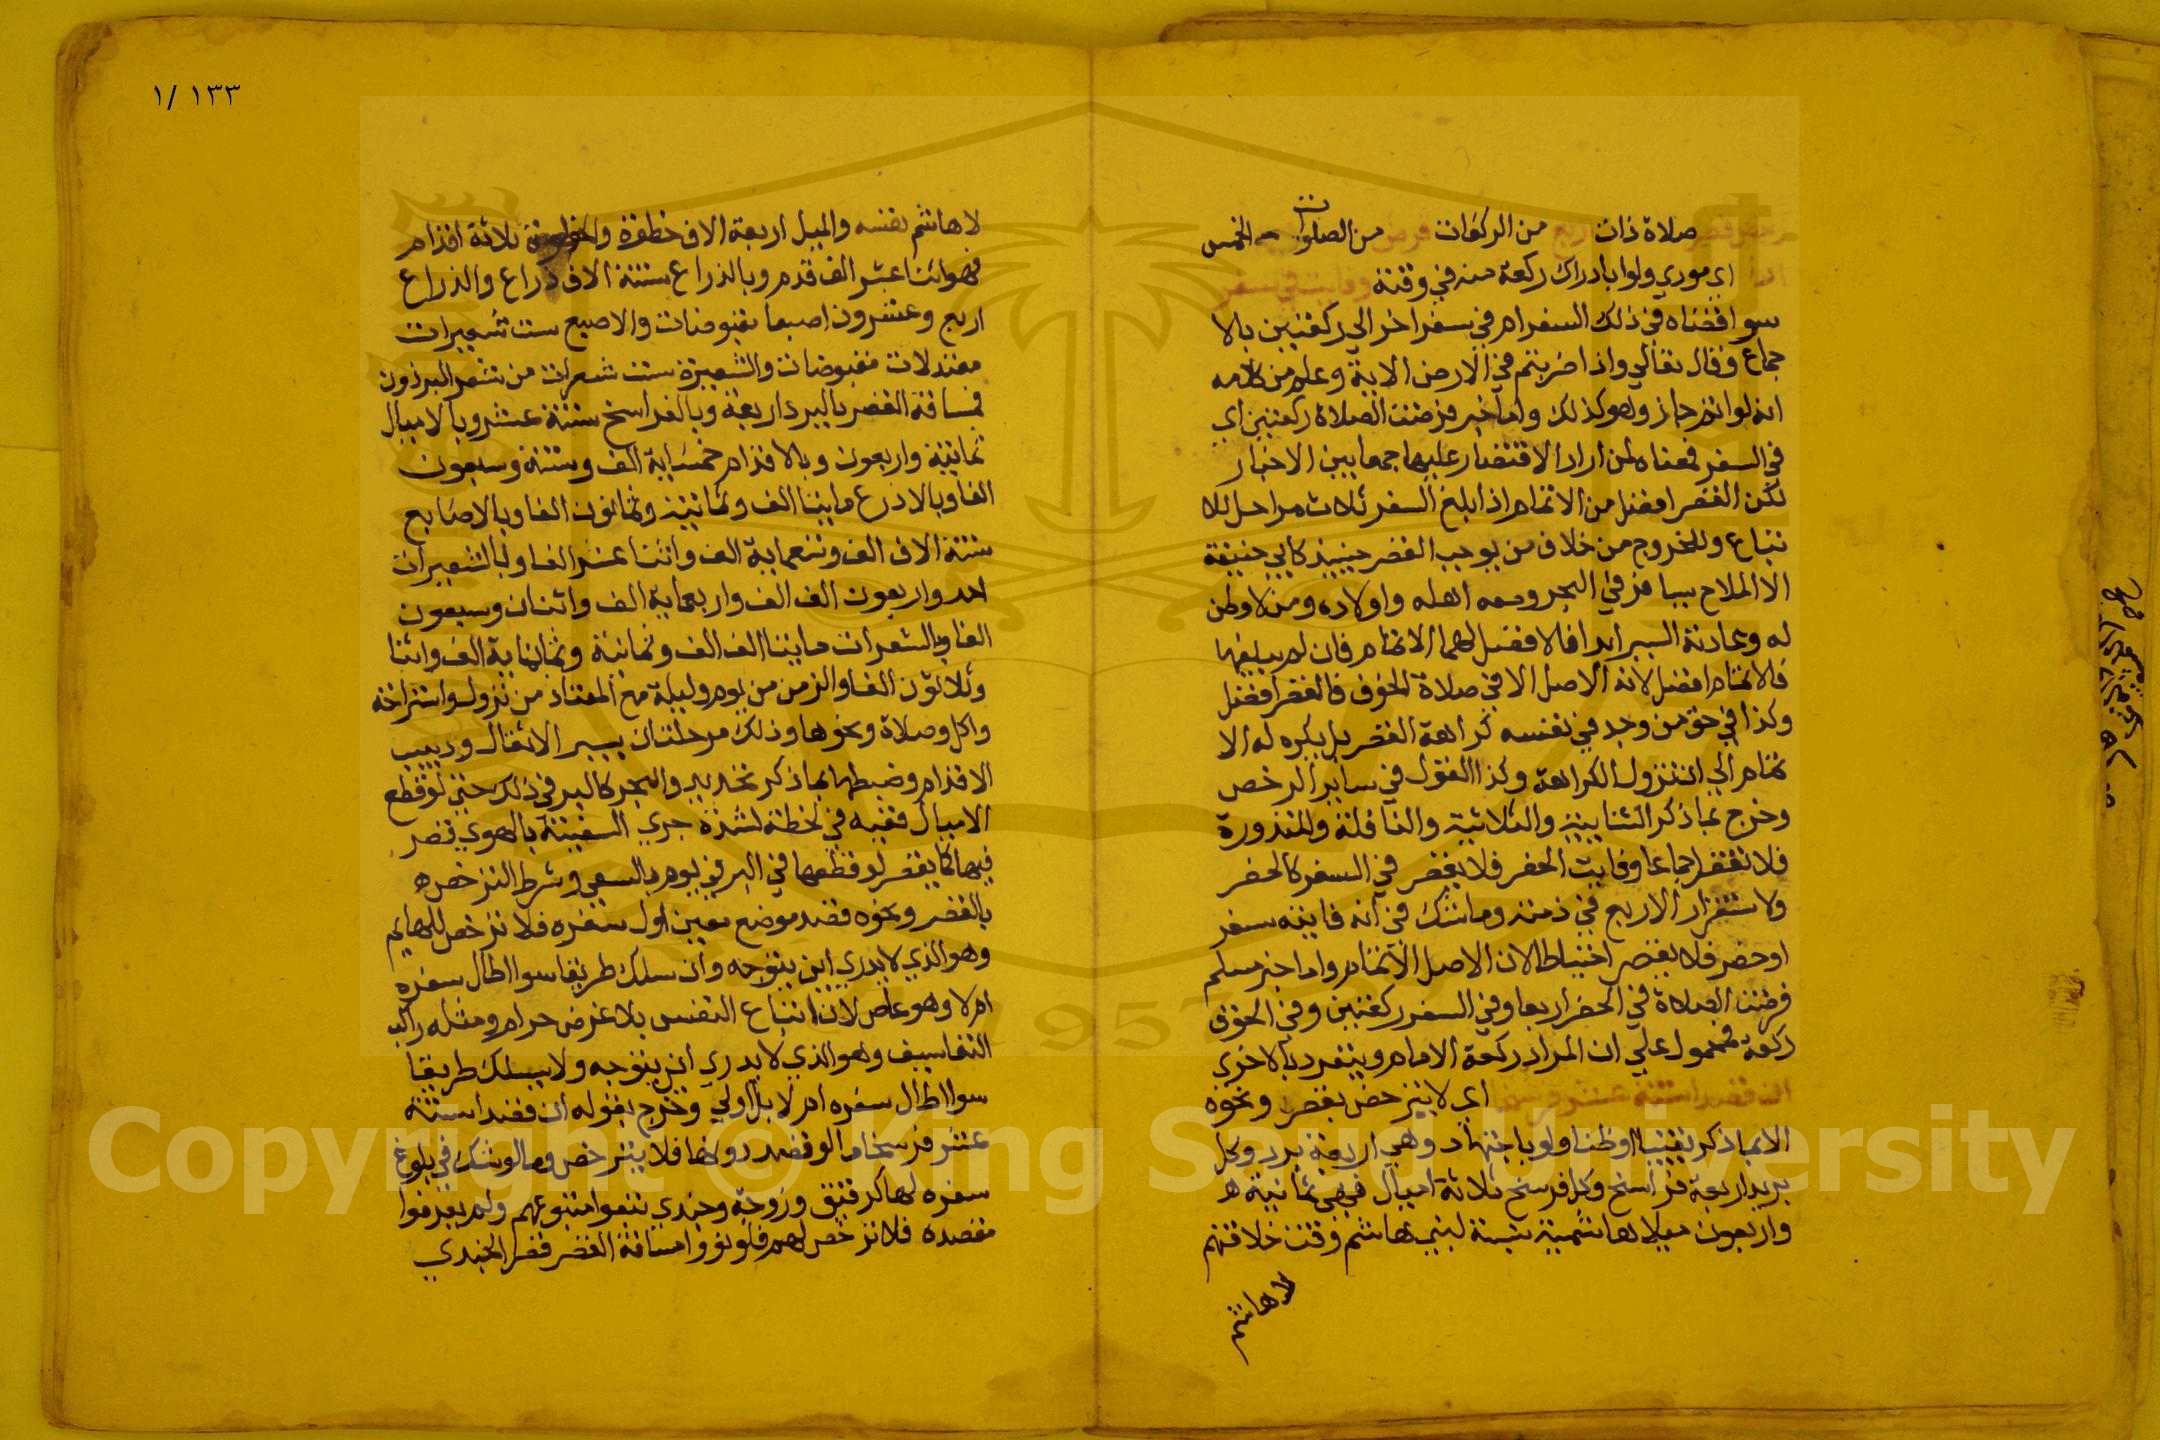 صلاة ذات اربع من الركعات فرض من الصلوات الخمس
اي مودي ولوا بادراك ركعة منه في وقته وفايت في سفر
سوا قضاه في ذلك السفر ام في سفر اخر الي ركعتين بالا
جماع وقال تعالي واذا ضربتم في الارض الاية وعلم من كلامه
انه لو اتم جاز وهو كذلك واما خبر فرضت الصلاة ركعتين اي
في السفر فمعناه لمن اراد الاقتصار عليها جمعا بين الاخبار
لكن القصر افضل من الاتمام اذا بلغ السفر ثلاث مراحل للا
تباع وللخروج من خلاف من يوجب القصر حينيذ كابي حنيفة
الا الملاح يسافر في البحر ومعه اهله واولاده ومن لا وطن
له وعادته السير ابدا فلافضل لهما الاتمام فان لم يبلغها
فالاتمام افضل لانه الاصل الا في صلاة الخوف فالقصر افضل
وكذا في حق من وجد في نفسه كراهة القصر بل يكره له الا
تمام الي ان تزول الكراهة وكذا القول في ساير الرخص
وخرج بما ذكر الثنايية والثلاثية والنافلة والمنذورة
فلا تقصر اجماعا وفايت الحضر فلا يقصر في السفر كالحضر
ولاستقرار الاربع في ذمته وما شك في انه فايتة سفر
او حضر فلا يقصر احتياطا لان الاصل الاتمام واما خبر مسلم
فرضت الصلاة في الحضر اربعا وفي السفر ركعتين وفي الخوف
ركعة فمحمول علي ان المراد ركعة الامام وينفرد بالاخري
ان قصد ستة عشر فرسخا اي لا يترخص بقصر ونحوه
الا بما ذكر يقينا او ظنا ولو باجتهاد وهي اربعة برد وكل
بريد اربعة فراسخ وكل فرسخ ثلاثة اميال فهي ثمانية ه
واربعون ميلا هاشمية نسبة لبني هاشم وقت خلافتهم
لا هاشم
١٣٣ /١
لا هاشم نفسه والميل اربعة الاف خطوة والخطوة ثلاثة اقدام
فهو اثنا عشر الف قدم وبالذراع ستة الاف ذراع والذراع
اربع وعشرون اصبعا مقبوضات والاصبع ست شعيرات
معتدلات مقبوضات والشعيرة ست شعرات من شعر البرذون
فمسافة القصر بالبرد اربعة وبالفراسخ ستة عشر وبالاميال
ثمانية واربعون وبالاقدام خمساية الف وستة وسبعون
الفا وبالاذرع مايتا الف وثمانية وثمانون الفا وبالاصابع
ستة الاف الف وتسعماية الف واثنا عشر الفا وبالشعيرات
احد واربعون الف الف واربعماية الف واثنان وسبعون
الفا وبالشعرات مايتا الف الف وثمانية وثمانماية الف واثنا
وثلاثون الفا والزمن من يوم وليلة مع المعتاد من نزول واستراحة
واكل وصلاة ونحوها وذلك مرحلتان بسير الاثقال ودبيب
الاقدام وضبطها بما ذكر تحديد والبحر كالبر في ذلك حتي لو قطع
الاميال فيه في لحظة لشدة جري السفينة بالهوي قصر
فيها كما يقصر لو قطعها في البر في يوم بالسعي وشرط الترخص ه
بالقصر ونحوه قصد موضع معين اول سفره فلا ترخص للهايم
وهو الذي لا يدري اين يتوجه وان سلك طريقا سوا طال سفره
ام لا وهو عاص لان اتباع النفس بلا غرض حرام ومثله راكب
التعاسيف وهو الذي لا يدري اين يتوجه ولا يسلك طريقا
سوا طال سفره ام لا بل اولي وخرج بقوله ان قصد ستة
عشر فرسخا ما لو قصد دونها فلا يترخص وما لو شك في بلوغ
سفره لها كرقيق وزوجة وجندي تبعوا متبوعهم ولم يعرفوا
مقصده فلا ترخص لهم فلو نووا مسافة القصر قصر الجندي
Copyright © King Saud University
1957